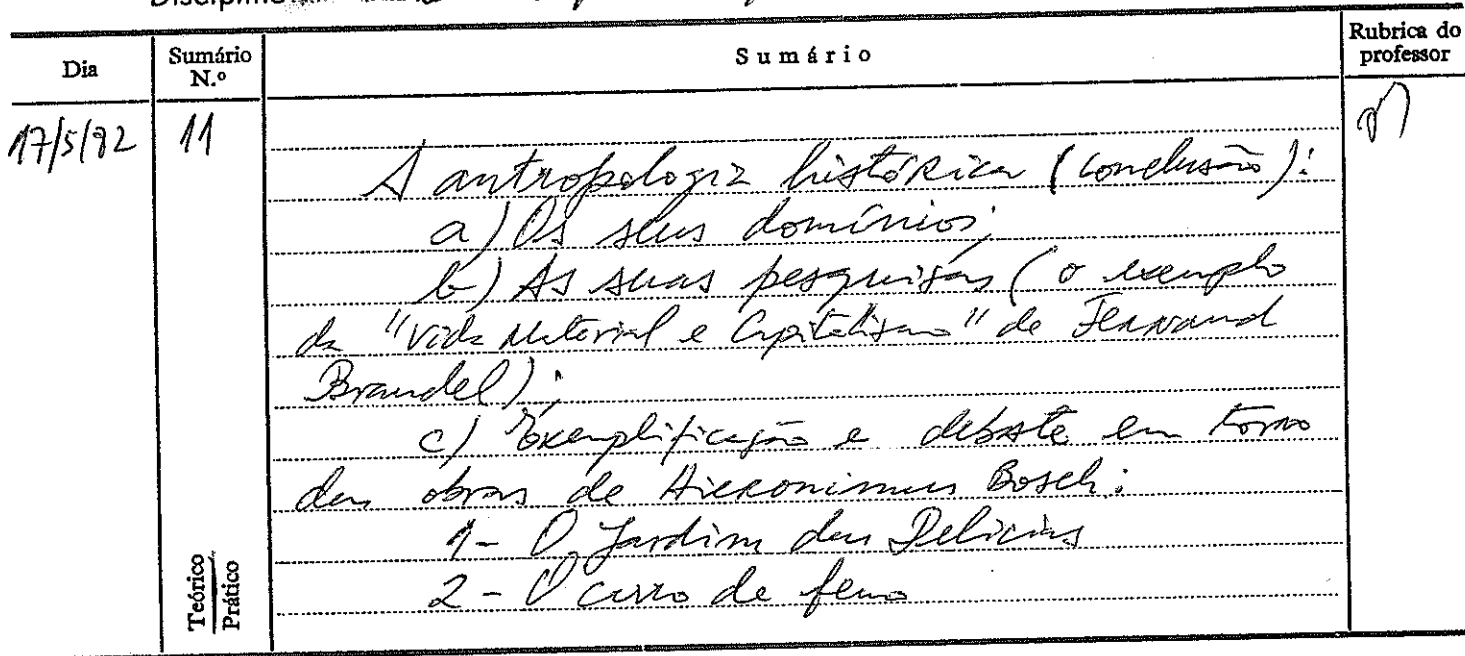 Dia Sumário N.º Sumário Rubrica do professor
17/5/82 11
A antropologia histórica (conclusão):
a) Os seus domínios;
b) As suas pesquisas (o exemplo
da "Vida Material e Capitalismo" de Fernand
Braudel);
c) Exemplificação e debate em torno
das obras de Hieronimus Bosch:
1- O Jardim das Delícias
2- O carro de feno
Teórico
Prático